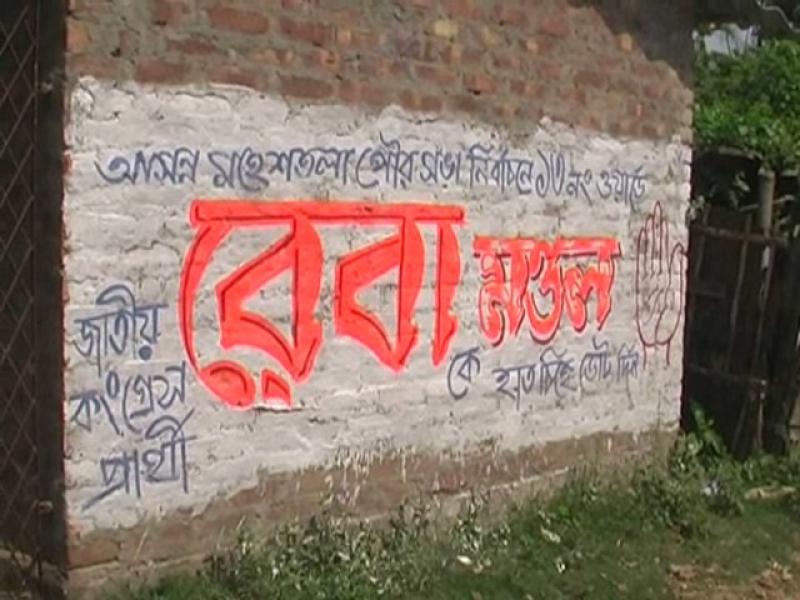 আসন্ন মহেশতলা পৌরসভা নির্বাচনে ১৩নং ওয়ার্ডে
জাতীয়
কংগ্রেস
প্রার্থী
রেবা মণ্ডল
কে হাত চিহ্নে ভোট দিন